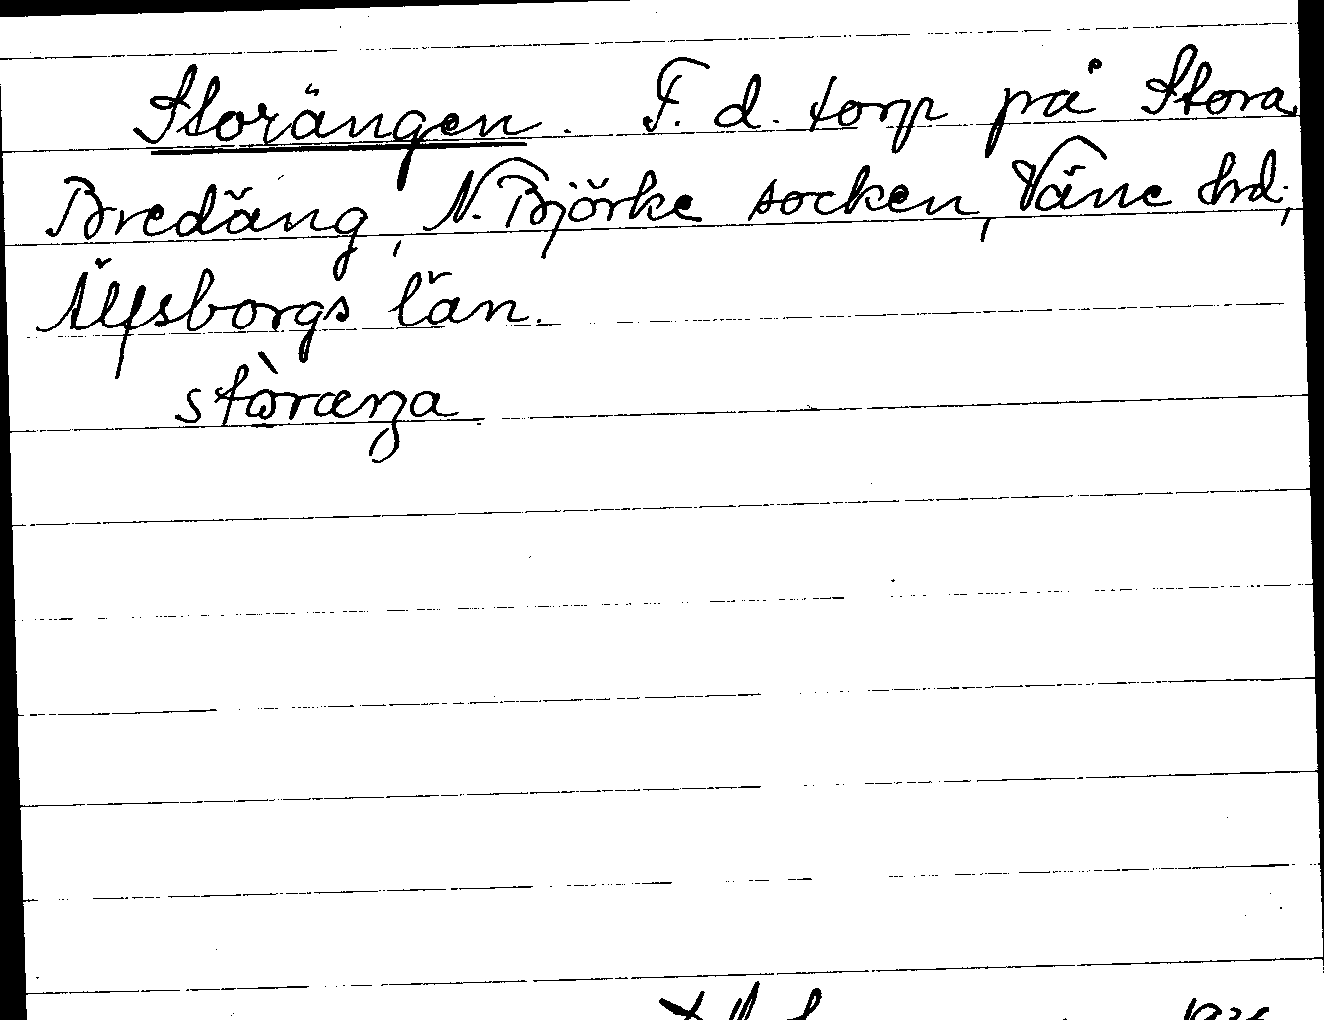 Storängen. F. d. torp på Stora
Bredäng, N. Björke socken, Väne hd;
Älfsborgs län.
stòræŋa